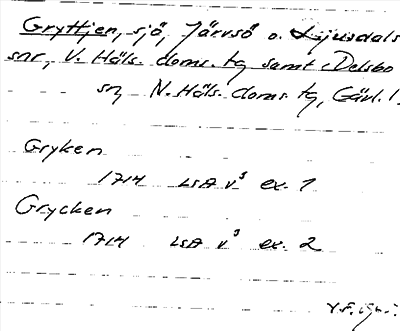 Gryttjen, sjö, Järvsö o. Ljusdals
snr, V. Häls. doms. tg samt Delsbo
sn, N. Häls. doms. tg, Gävl. l.
Gryken
1714 LSA V³ ex. 1
Grycken
1714 LSA V³ ex. 2